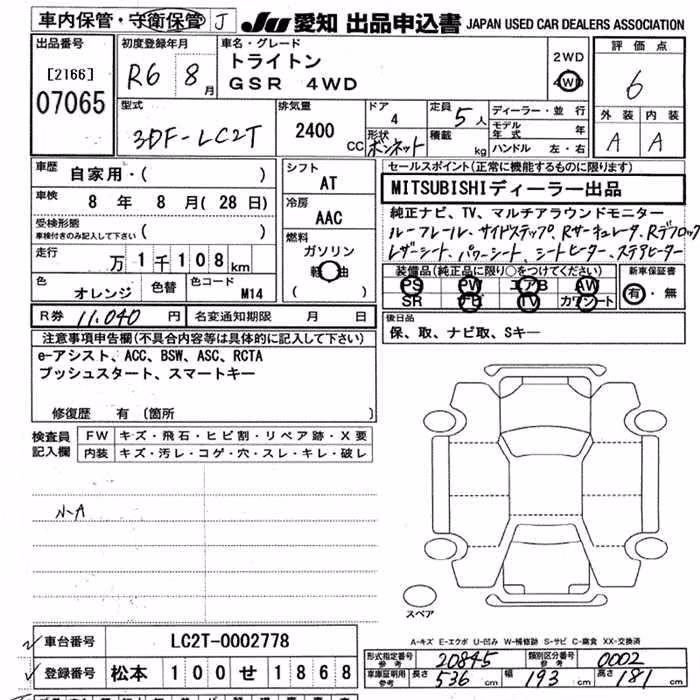 車内保管・守衛保管 J JU 愛知 出品申込書 JAPAN USED CAR DEALERS ASSOCIATION
出品番号 [2166] 07065
初度登録年月 R6 8月
車名・グレード トライトン
GSR 4WD
2WD
4WD
評価点 6
外装 内装
A A
型式 3DF-LC2T
排気量 2400 CC
ドア 4
形状 ボンネット
定員 5人
積載 kg
ディーラー・並行
モデル年式 年
ハンドル 左・右
車歴 自家用・( )
車検 8年 8月(28日)
受検形態
車検付きのみ記入して下さい ( )
走行 万1千108km
色 オレンジ 色替 色コード M14
シフト AT
冷房 AAC
燃料 ガソリン
軽油
( )
セールスポイント(正常に機能するものに限ります)
MITSUBISHIディーラー出品
純正ナビ、TV、マルチアラウンドモニター
ルーフレール、サイドステップ、Rサーキュレータ、Rデフロック
レザーシート、パワーシート、シートヒーター、ステアヒーター
装備品(純正品に限り○をつけてください)
PS PW エアB AW
SR ナビ TV カワシート
新車保証書
有・無
R券 11,040円 名変通知期限 月 日
後日品
保、取、ナビ取、Sキー
注意事項申告欄(不具合内容等は具体的に記入して下さい)
e-アシスト、ACC、BSW、ASC、RCTA
プッシュスタート、スマートキー
修復歴 有 (箇所 )
検査員記入欄
FW キズ・飛石・ヒビ割・リペア跡・X要
内装 キズ・汚レ・コゲ・穴・スレ・キレ・破レ
スペア
A-キズ E-エクボ U-凹み W-補修跡 S-サビ C-腐食 XX-交換済
車台番号 LC2T-0002778
登録番号 松本 100 せ 1868
形式指定番号 参考 20845 類別区分番号 参考 0002
車庫証明用 参考 長さ 536cm 幅 193cm 高さ 181cm